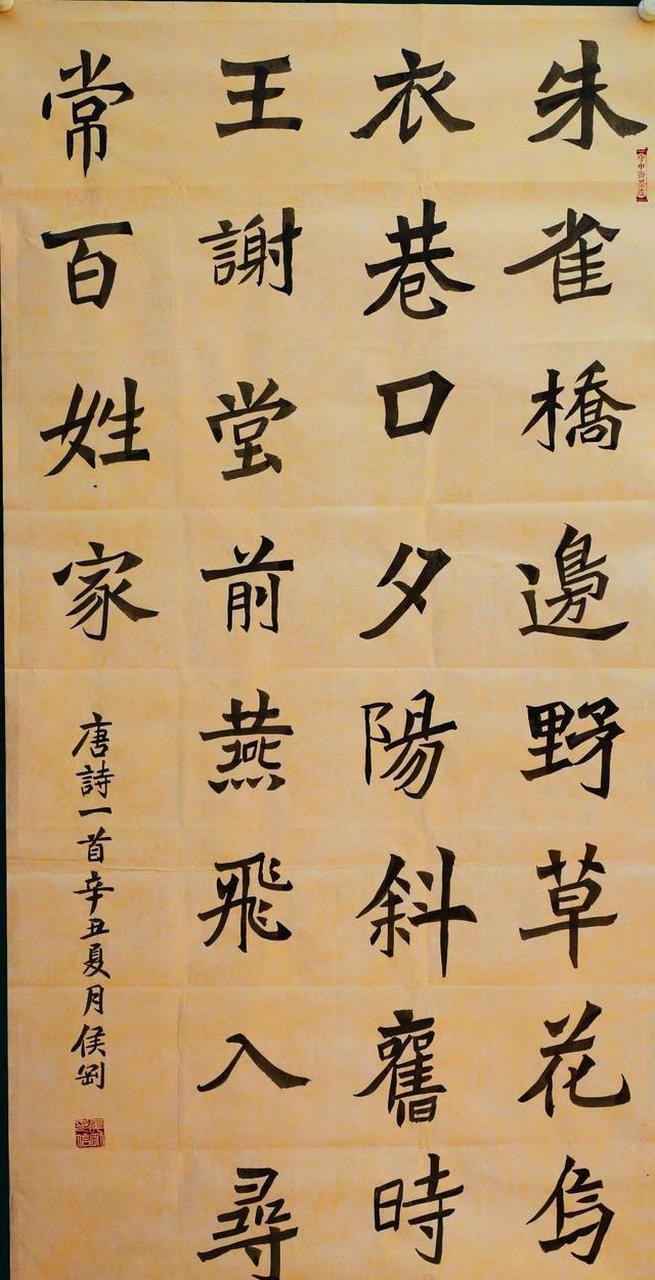 朱雀橋邊野草花烏
衣巷口夕陽斜舊時
王謝堂前燕飛入尋
常百姓家
唐詩一首辛丑夏月侯剛